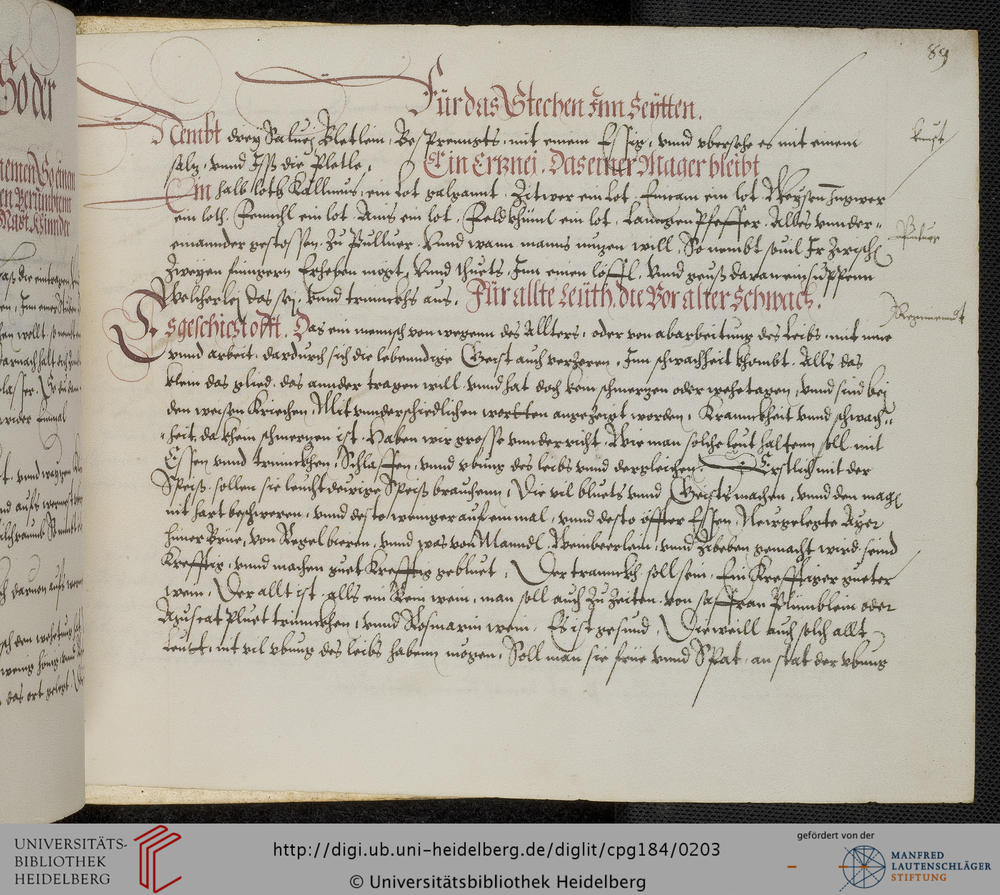 89
Für das Stechen Inn Seÿtten.
Nembt dreÿ Saluej Bletlein, Be Prennts, mit einem Essig, vnnd vbersehe es mit einem
saltz, vnnd Iss die Pletle, Ein Ertznei. Das einer Mager bleibt
Ein halb loth Kallmus, ein lot galgannt. Zitwer ein Lot. Enian ein lot. Weÿsen Ingwer
ein loth. Fennchl ein lot. Anis ein lot. Feldkhüml ein lot. Lanngen Pfeffer. Alles vnnder=
einannder gestossen. Zu Pulluer. Vnnd wann manns nützen will. So nembt souil Ir zwischen
Zweÿen fingern Erheben mögt, Vnnd thuets, Inn einen löffl. Vnnd geust daran ein suppenn
Welcherleÿ das seÿ, vnnd trinnckhs aus. Für allte Leüth, die Vor alter schwach.
Es geschiecht offt. Das ein mensch von wegenn des Allters, oder von abarbeitung des leibs, mit
vnnd arbeit, dardurch sich die lebenndige Geist auch verzeren, Inn schwachheit khombt. Alls das
klein das glied. das annder tragen will. vnnd hat doch kein schmertzen oder wehetagen, vnnd sind beÿ
den weisen Kriechen, Mit vnnderschiedlichen wortten angezeigt worden, Kranckheit vnnd schwach=
=heit, da khein schmertzen ist. Haben wir grosse vnnderricht. Wie man solche leut haltenn soll mit
Essen vnnd trinnckhen, Schlaffen, vnnd vbung des leibs vnnd dergleichen. Erstlich mit der
Speiß. sollen sie leucht deuige Speiß brauchenn, Die vil bluets vnnd Geists machen, vnnd den mag
nit hart beschweren, vnnd desto weniger auf ein mal, vnnd desto öffter Essen. Neugelegte Aÿer
hüner Brüe, von Regelbieren, vnnd was von Manndl, Weinbeerlein, vnnd Zibeben gemacht wird, seind
Krefftig, vnnd machen guet Krefftig gebluet, Der tranckh soll sein. Ein Krefftiger gueter
wein, Der allt ist, alls ein Rein wein, man soll auch Zu Zeiten von saffran Blümblein oder
Muscat Pluet trinnckhen, vnnd Rosmarin wein. Es ist gesund, Dieweill auch solch allt
Leutt, nit vil vbung des leibs habenn mögen, Soll man sie früe vnnd Spat, an stat der vbung
UNIVERSITÄTS-
BIBLIOTHEK
HEIDELBERG
http://digi.ub.uni-heidelberg.de/diglit/cpg184/0203
© Universitätsbibliothek Heidelberg
gefördert von der
MANFRED
LAUTENSCHLÄGER
STIFTUNG